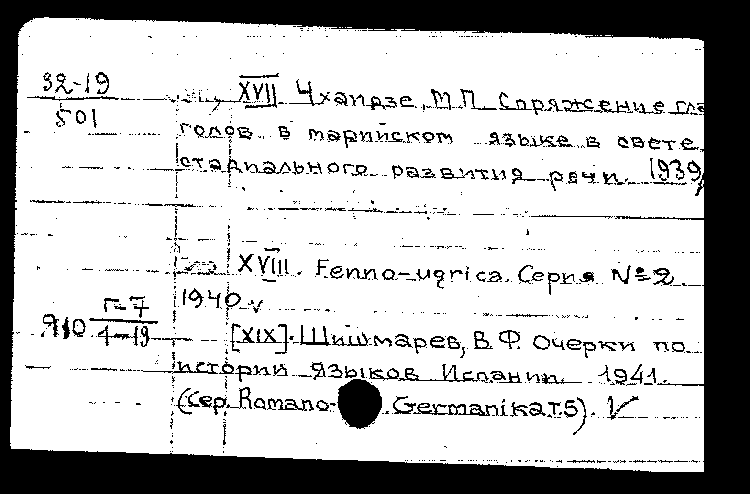 32-19
501
XVII Чхаидзе, М.П. Спряжение гла
голов в марийском языке в свете
стадиального развития речи. 1939
XVIII. Fenno-ugrica. Серия № 2.
1940 v
Г-7
Я10 4-19
[XIX]. Шишмарев, В.Ф. Очерки по
истории языков Испании. 1941.
(Сер. Romano- Germanika т.5). V